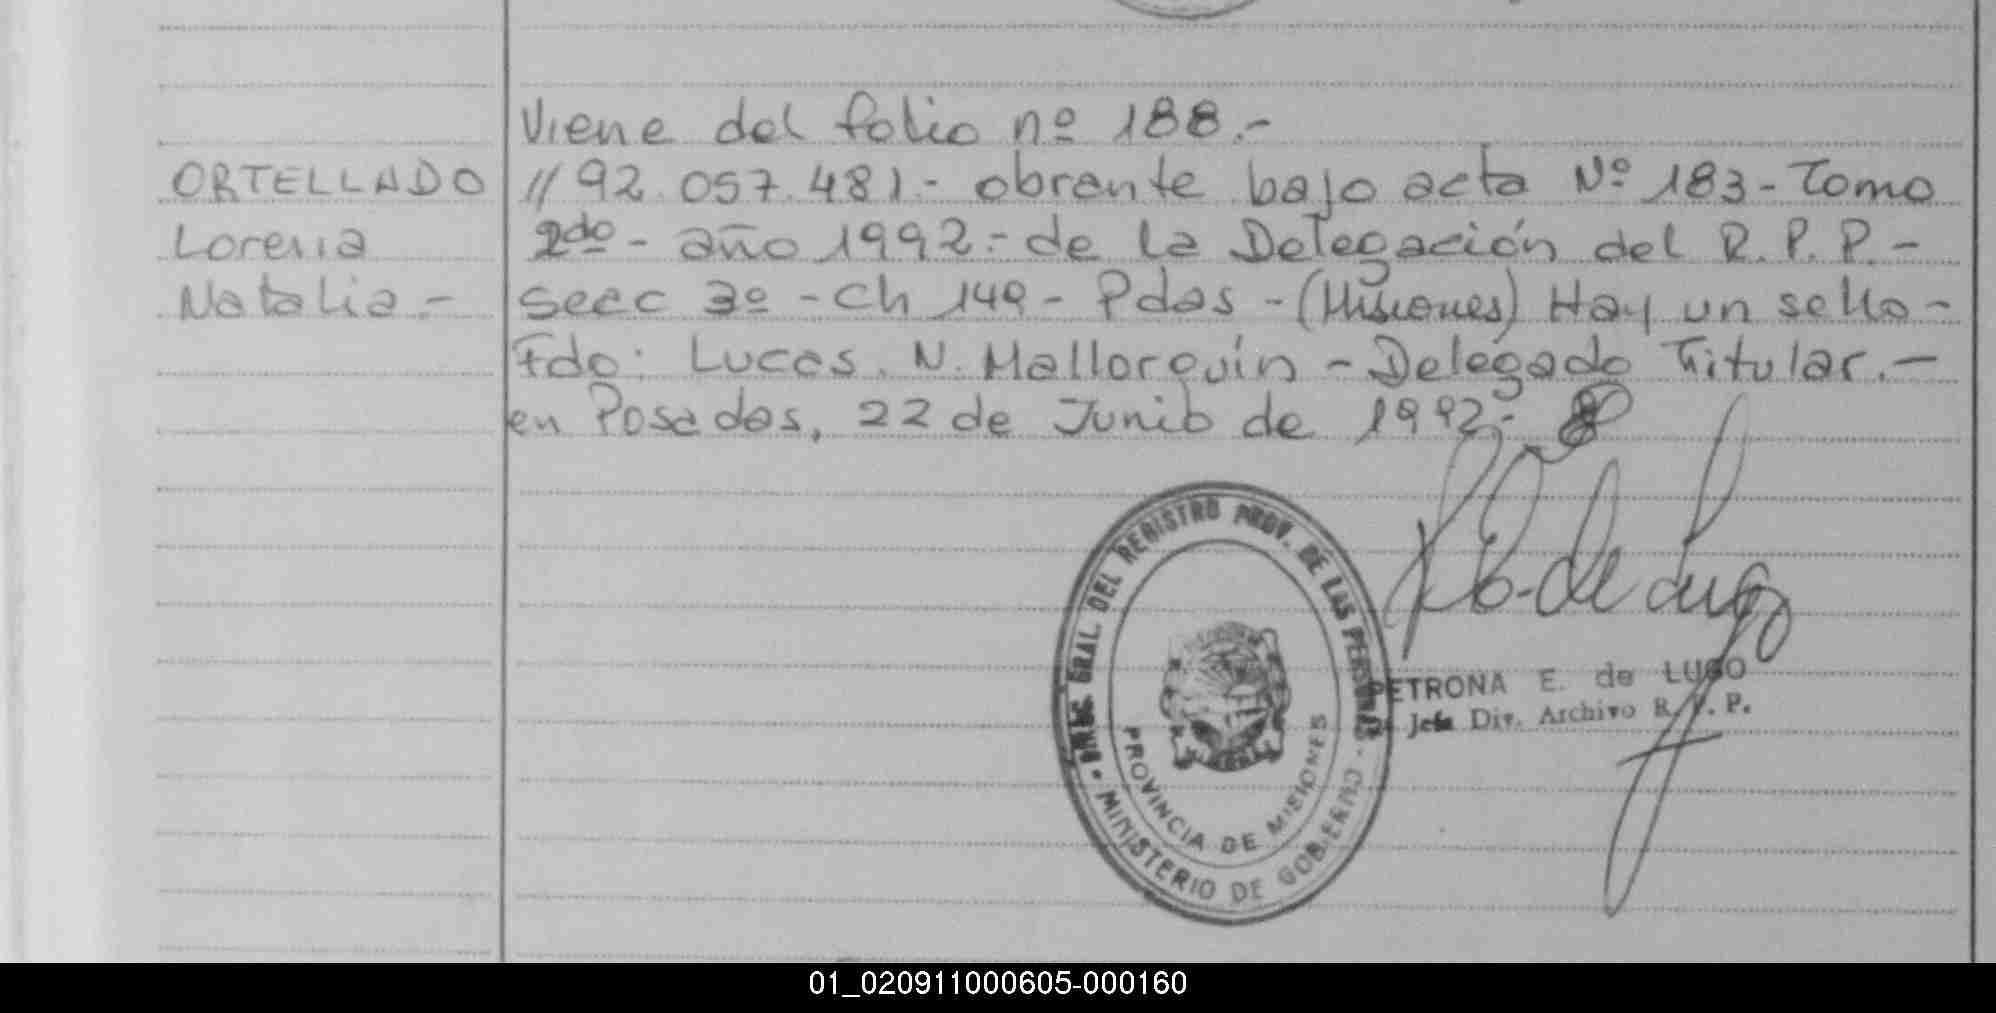 Viene del folio nº 188.-
ORTELLADO // 92.057.481.- obrante bajo acta Nº 183 - Tomo
Lorena 2do - año 1992.- de la Delegación del R.P.P.-
Natalia.- Secc 3º - Ch 149 - Pdas - (Misiones) Hay un sello -
Fdo: Lucas. N. Mallorquín - Delegado Titular.-
en Posadas, 22 de Junio de 1992.-
DIREC. GRAL. DEL REGISTRO PROV. DE LAS PERSONAS
MINISTERIO DE GOBIERNO
PROVINCIA DE MISIONES
P E. de Lugo
PETRONA E. de LUGO
Jefa Div. Archivo R. P. P.
01_020911000605-000160